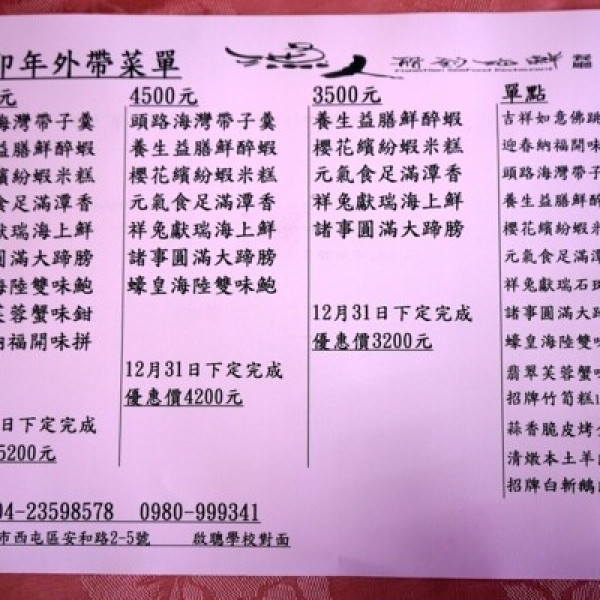 卯年外帶菜單
漁人
餐廳
元
海灣帶子羹
益膳鮮醉蝦
繽紛蝦米糕
食足滿潭香
獻瑞海上鮮
圓滿大蹄膀
海陸雙味鮑
芙蓉蟹味鉗
納福開味拼
日下定完成
5200元
4500元
頭路海灣帶子羹
養生益膳鮮醉蝦
櫻花繽紛蝦米糕
元氣食足滿潭香
祥兔獻瑞海上鮮
諸事圓滿大蹄膀
蠔皇海陸雙味鮑
12月31日下定完成
優惠價4200元
3500元
養生益膳鮮醉蝦
櫻花繽紛蝦米糕
元氣食足滿潭香
祥兔獻瑞海上鮮
諸事圓滿大蹄膀
12月31日下定完成
優惠價3200元
單點
吉祥如意佛跳
迎春納福開味
頭路海灣帶子
養生益膳鮮醉
櫻花繽紛蝦米
元氣食足滿潭
祥兔獻瑞石
諸事圓滿大蹄
蠔皇海陸雙味
翡翠芙蓉蟹味
招牌竹筍糕1
蒜香脆皮烤
清燉本土羊
招牌白斬鵝
04-23598578 0980-999341
市西屯區安和路2-5號 啟聰學校對面